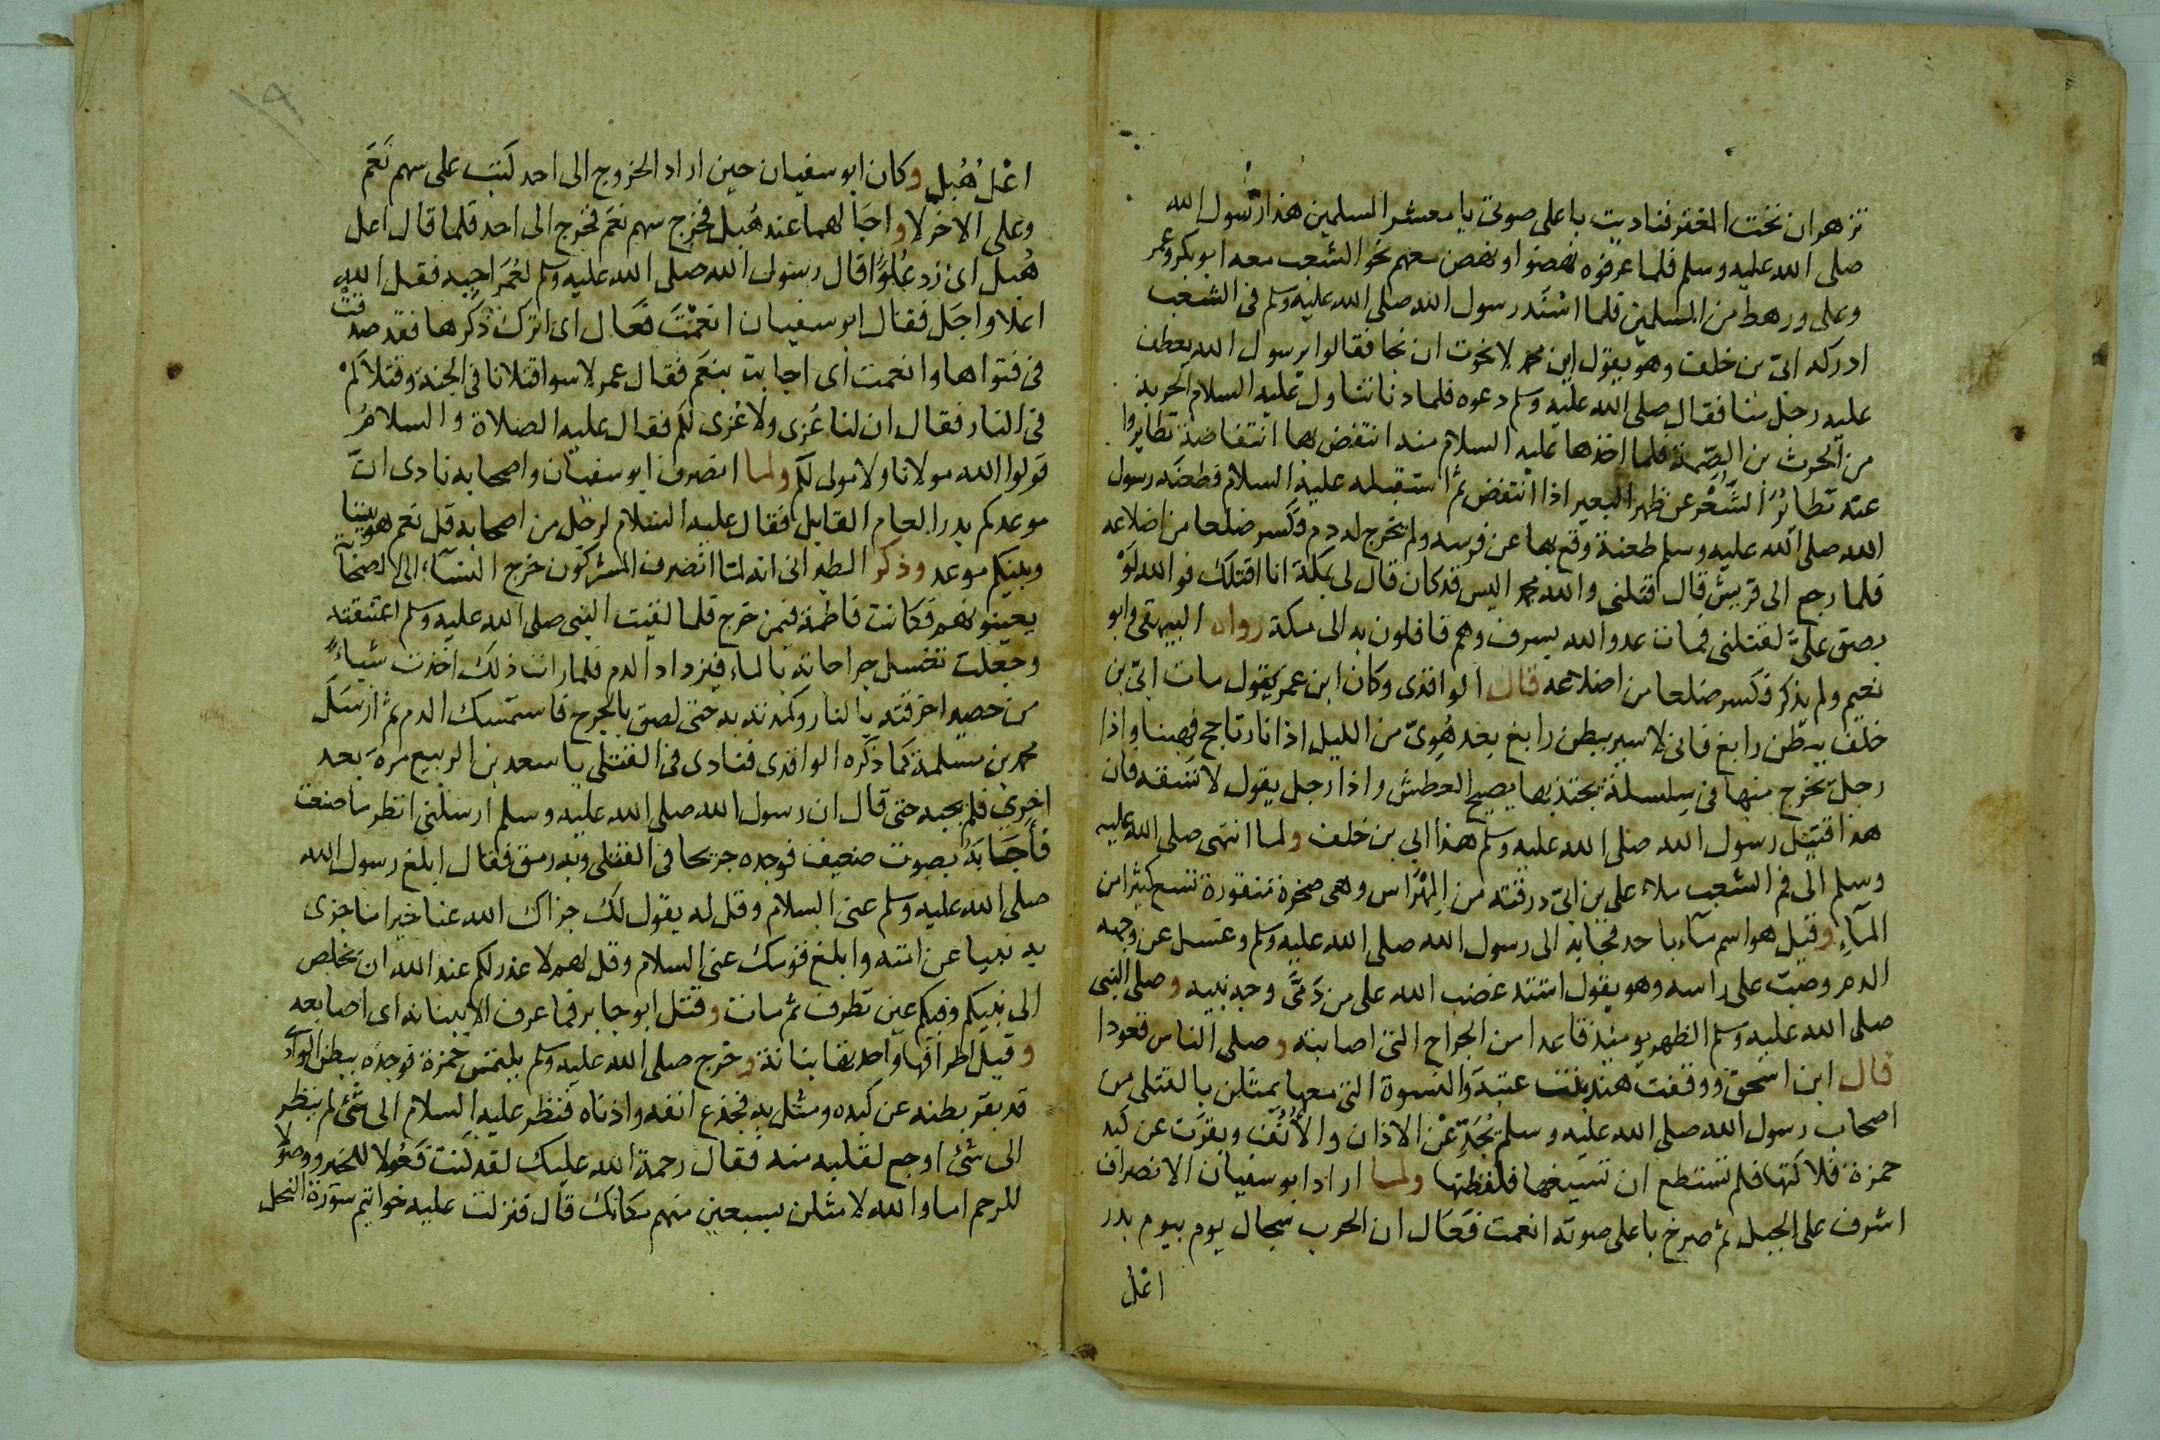 تزهران تحت المغفر فناديت باعلى صوتى يا معشر المسلمين هذا رسول الله
صلى الله عليه وسلم فلما عرفوه نهضوا ونهض معهم نحو الشعب معه ابو بكر وعمر
وعلى ورهط من المسلمين فلما اسند رسول الله صلى الله عليه وسلم فى الشعب
ادركه ابىّ بن خلف وهو يقول اين محمد لا نجوت ان نجا فقالوا يرسول الله يعطف
عليه رجل منا فقال صلى الله عليه وسلم دعوه فلما دنا تناول عليه السلام الحربة
من الحرث بن الصِّمة فلما اخذها عليه السلام منه انتفض بها انتفاضة تطايروا
عنه تطايُرَ الشَّعْر عن ظهر البعير اذا انتفض ثم استقبله عليه السلام فطعنه رسول
الله صلى الله عليه وسلم طعنة وقع بها عن فرسه ولم يخرج له دم فكسر ضلعا من اضلاعه
فلما رجع الى قريش قال قتلنى والله محمد اليس قد كان قال لى بمكة انا اقتلك فوالله لَوْ
بصق علىّ لقتلنى فمات عدو الله بسرف وهم قافلون به الى مكة رواه البيهقى وابو
نعيم ولم يذكر فكسر ضلعا من اضلاعه قال الواقدى وكان ابن عمر يقول مات ابىّ بن
خلف ببطن رابغ فانى لاسير ببطن رابغ بعد هُوِىّ من الليل اذا نار تاجج فهبتها واذا
رجل يخرج منها فى سِلسلة يجتذبها يصيح العطش واذا رجل يقول لا تسقه فان
هذا قتيل رسول الله صلى الله عليه وسلم هذا ابي بن خلف ولما انتهى صلى الله عليه
وسلم الى فم الشعب ملاء على بن ابىّ درقته من المِهْرَاس وهى صخرة منقورة تسع كثيرا من
المآءِ وقيل هو اسم مآء باحد فجا به الى رسول الله صلى الله عليه وسلم وغسل عن وجهه
الدم وصبّ على راسه وهو يقول اشتد غضب الله على من دَمَّى وجه نبيه وصلى النبى
صلى الله عليه وسلم الظهر يومئذ قاعدا من الجراح التى اصابته وصلى الناس قعودا
قال ابن اسحق ووقفت هند بنت عتبة والنسوة التى معها يمثلن بالقتلى من
اصحاب رسول الله صلى الله عليه وسلم يُجَدِّعْن الاذان والأُنُف وبقرَت عن كبد
حمزة فلاكتها فلم تستطع ان تسيغها فلفظتها ولما اراد ابو سفيان الانصراف
اشرف على الجبل ثم صرخ باعلى صوته انعمت فَعَال ان الحرب سجال يوم بيوم بدر
اعْلُ
اعْلُ هُبل وكان ابو سفيان حين اراد الخروج الى احد كتب على سهم نَعَم
وعلى الاخر لا واجَالهما عند هُبل فخرج سهم نعم فخرج الى احد فلما قال اعل
هُبل اى زد عُلوًّا قال رسول الله صلى الله عليه وسلم لعُمَر اجبه فقل الله
اعلا واجَل فقال ابو سفيان انعَمْتَ فَعَال اى اترك ذكرها فقد صدقَتْ
فى فتواها وانعمت اى اجابت بنعَم فقال عمر لا سوا قتلانا فى الجنة وقتلاكمْ
فى النار فقال ان لنا عُزى ولا عُزى لكم فقال عليه الصلاة والسلامُ
قولوا الله مولانا ولا مولى لكم ولما انصرف ابو سفيان واصحابه نادى انّ
موعدكم بدر العام القابل فقال عليه السلام لرجل من اصحابه قل نعم هو بيننا
وبينكم موعد وذكر الطبرانى انه لما انصرف المشركون خرج النسآء الى الصحابة
يعينونهم فكانت فاطمة فيمن خرج فلما لقيت النبى صلى الله عليه وسلم اعتنقته
وجعلت تغسل جراحاته بالماء فيزداد الدم فلما رات ذلك اخذت شياءً
من حصير احرقته بالنار وكمدته به حتى لصق بالجرح فاستمسك الدم ثم ارسَلَ
محمد بن مسلمة كما ذكره الواقدى فنادى فى القتلى يا سعد بن الربيع مرة بعد
اخرى فلم يجبه حتى قال ان رسول الله صلى الله عليه وسلم ارسلنى انظر ما صنعت
فأجَابَه بصوت ضعيف فوجده جريحا فى القتلى وبه رمق فقال ابلغ رسول الله
صلى الله عليه وسلم عنى السلام وقل له يقول لك جزاك الله عنا خيرا ما جزى
به نبيا عن امته وابلغ قومك عنى السلام وقل لهم لا عذر لكم عند الله ان يخلص
الى نبيكم وفيكم عين تطرف ثم مات وقتل ابو جابر فما عرف الا ببنانه اى اصابعه
وقيل اطرافها واحدتها بنانة وخرج صلى الله عليه وسلم يلتمس حمزة فوجده ببطن الوادى
قد بقر بطنه عن كبده ومثل به فجذع انفه واذناه فنظر عليه السلام الى شئ لم ينظر
الى شئ اوجع لقلبه منه فقال رحمة الله عليك لقد كنت فَعُولا للخير ووصولا
للرحم اما والله لامثلن بسبعين منهم مكانك قال فنزلت عليه خواتيم سورة النحل